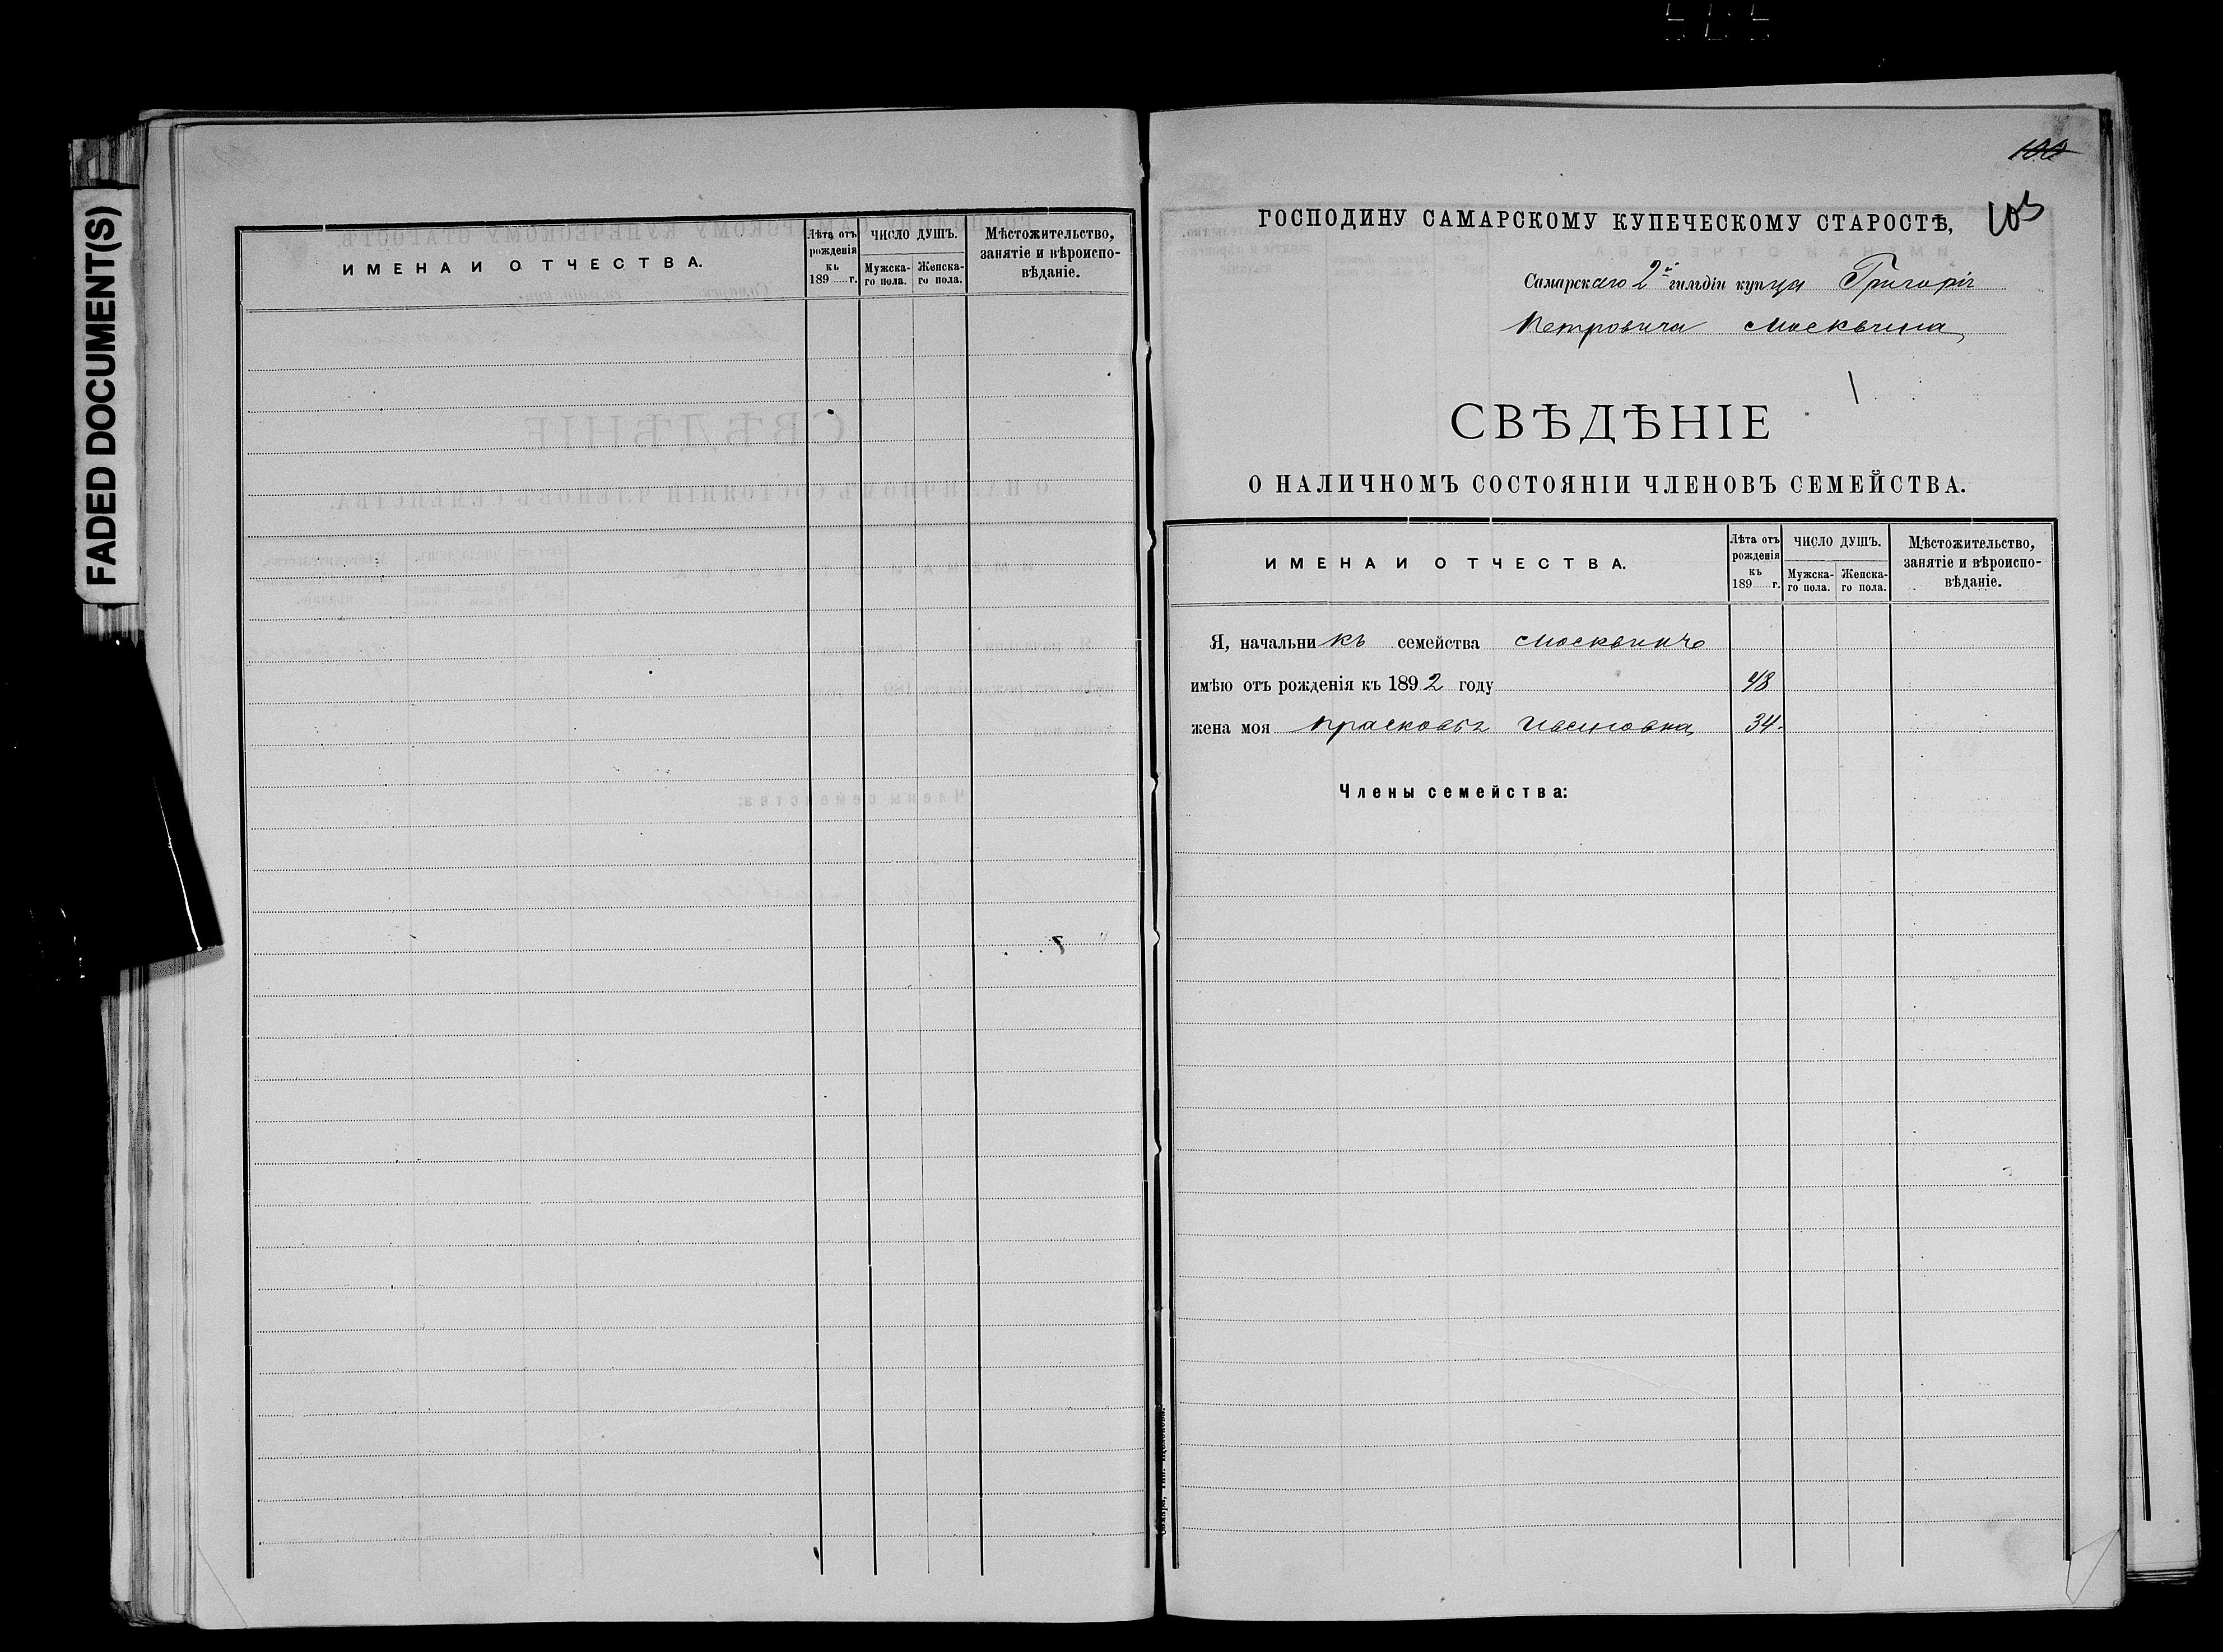 FADED DOCUMENT(S)
ИМЕНА И ОТЧЕСТВА.
Лѣта отъ рожденія къ 189 г.
ЧИСЛО ДУШЪ.
Мужска-го пола.
Женска-го пола.
Мѣстожительство, занятіе и вѣроиспо-вѣданіе.
103
ГОСПОДИНУ САМАРСКОМУ КУПЕЧЕСКОМУ СТАРОСТѢ,
Самарскаго 2й гильдіи купца Григорія
Петровича Москвина
СВѢДѢНІЕ
О НАЛИЧНОМЪ СОСТОЯНІИ ЧЛЕНОВЪ СЕМЕЙСТВА.
ИМЕНА И ОТЧЕСТВА.
Лѣта отъ рожденія къ 189 г.
ЧИСЛО ДУШЪ.
Мужска-го пола.
Женска-го пола.
Мѣстожительство, занятіе и вѣроиспо-вѣданіе.
Я, начальникъ семейства Москвинъ
имѣю отъ рожденія къ 1892 году 48
жена моя Прасковья Ивановна 34
Члены семейства: